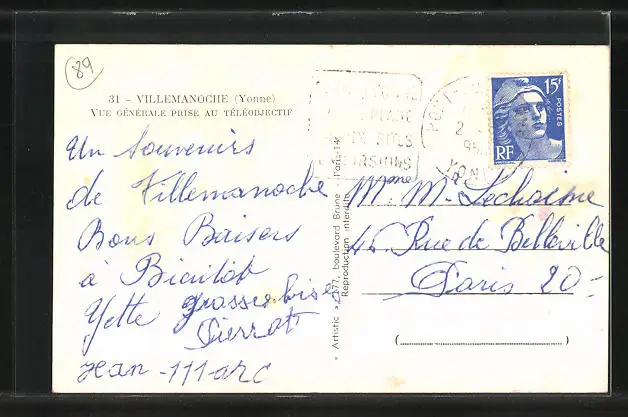 89
31 - VILLEMANOCHE (Yonne)
VUE GÉNÉRALE PRISE AU TÉLÉOBJECTIF
Un Souvenirs
de Villemanoche
Bons Baisers
à Bientôt
Yette grosses bise
Pierrot
Jean-Marc
" Artistic " 377, boulevard Brune - Paris-14e
Reproduction interdite
PLAGE
SITES
EXCURSIONS
PONT-
2
YONNE
15f
POSTES
RF
M. Mme
46 Rue de Belleville
Paris 20
(
)